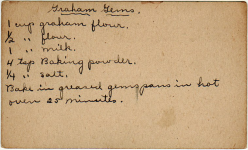 Graham Gems.
1 cup graham flour.
½ " flour.
1 " milk.
4 tsp Baking powder.
¼ " salt.
Bake in greased gem pans in hot
oven 25 minutes.